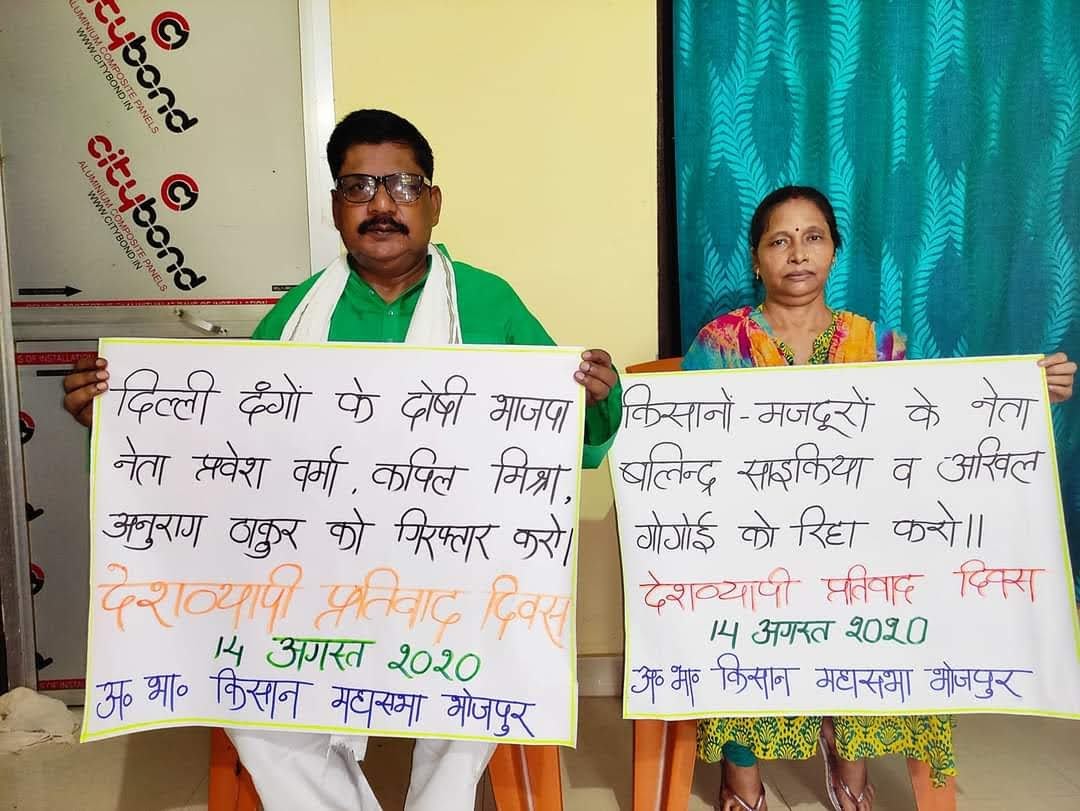 citybond
ALUMINIUM COMPOSITE PANELS
WWW.CITYBOND.IN
citybond
ALUMINIUM COMPOSITE PANELS
WWW.CITYBOND.IN
दिल्ली दंगों के दोषी भाजपा
नेता प्रवेश वर्मा, कपिल मिश्रा,
अनुराग ठाकुर को गिरफ्तार करो।
देशव्यापी प्रतिवाद दिवस
14 अगस्त २०२०
अ॰ भा॰ किसान महासभा भोजपुर
किसानों-मजदूरों के नेता
बलिन्द्र साइकिया व अखिल
गोगोई को रिहा करो॥
देशव्यापी प्रतिवाद दिवस
14 अगस्त २०२०
अ॰ भा॰ किसान महासभा भोजपुर